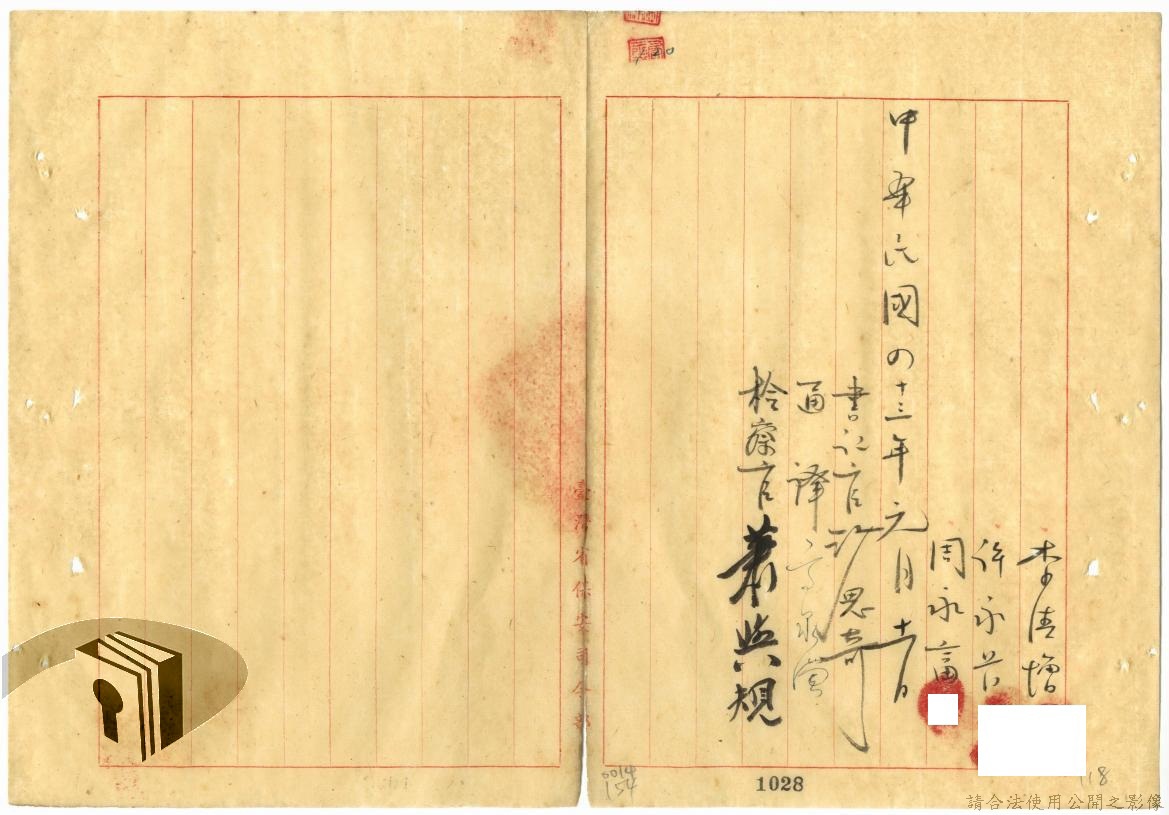 李清增
許永昔
周永富
中華民國四十三年元月十六日
書記官 沈思奇
通譯
檢察官 蕭與規
臺灣省保安司令部
0014
154
1028
118
請合法使用公開之影像